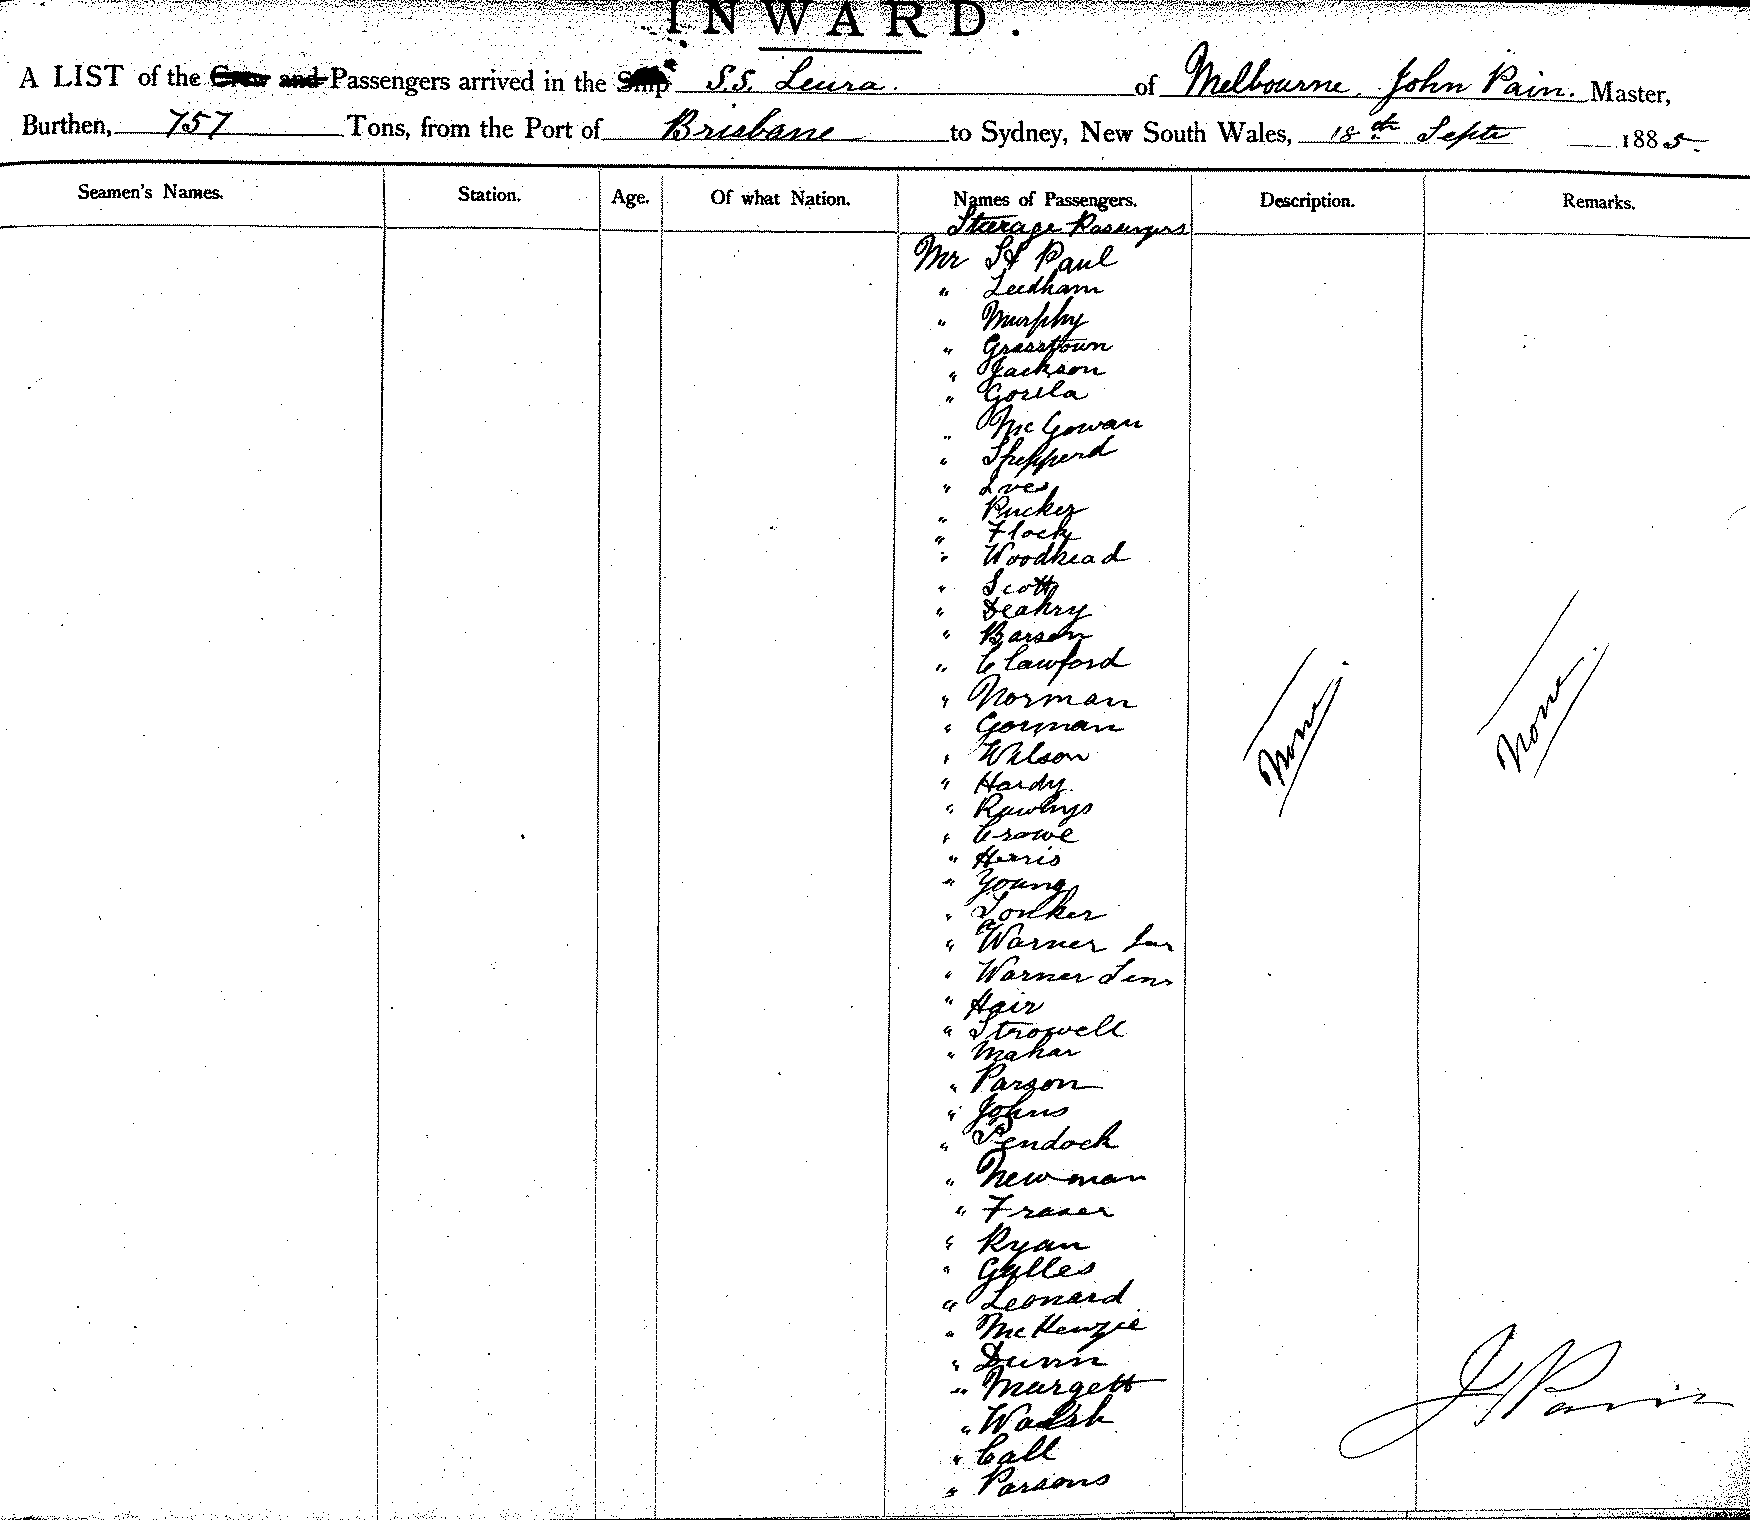 INWARD.
A LIST of the Crew and Passengers arrived in the Ship S.S. Leura. of Melbourne, John Pain. Master,
Burthen, 757 Tons, from the Port of Brisbane to Sydney, New South Wales, 18th Septr 1885.
Seamen's Names. Station. Age. Of what Nation. Names of Passengers. Description. Remarks.
Steerage Passengers
Mr St Paul
" Leedham
" Murphy
" Grasstown
" Jackson
" Gorila
" McGowan
" Shepperd
" Ives
" Rucker
" Flock
" Woodhead
" Scott
" Deahry
" Barsen
" Clawford
" Norman
" Gorman
" Wilson
" Hardy.
" Rawlings
" Crowe
" Harris
" Young
" Tonker
" Warner Jnr
" Warner Senr
" Hair
" Strowell
" Mahar
" Parson
" Johns
" Pendock
" Newman
" Fraser
" Ryan
" Gylles
" Leonard
" McKenzie
" Dunn
" Margett
" Walsh
" Call
" Parsons
None.
None.
J Pain